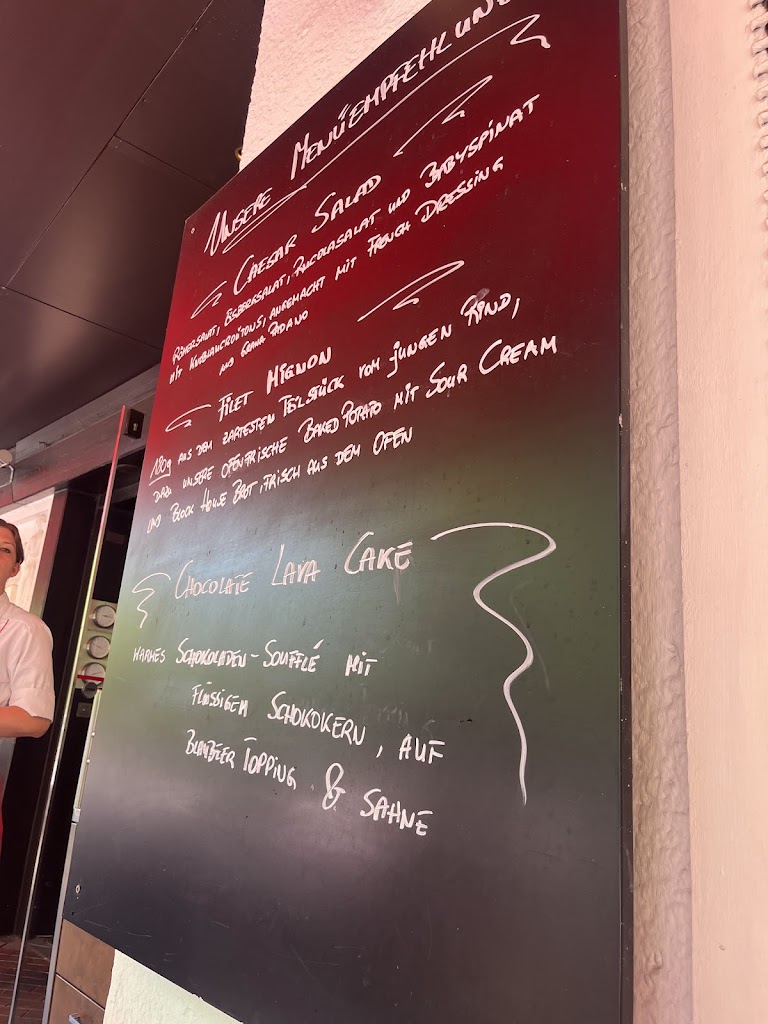 UNSERE MENÜEMPFEHLUNG
CAESAR SALAD
RÖMERSALAT, EISBERGSALAT, RUCOLASALAT UND BABYSPINAT
MIT KNOBLAUCHCROÛTONS, ANGEMACHT MIT FRENCH DRESSING
UND GRANA PADANO
FILET MIGNON
180g AUS DEM ZARTESTEN TEILSTÜCK VOM JUNGEN RIND,
DAZU UNSERE OFENFRISCHE BAKED POTATO MIT SOUR CREAM
UND BLOCK HOUSE BROT, FRISCH AUS DEM OFEN
CHOCOLATE LAVA CAKE
WARMES SCHOKOLADEN-SOUFFLÉ MIT
FLÜSSIGEM SCHOKOKERN, AUF
BLAUBEER TOPPING & SAHNE